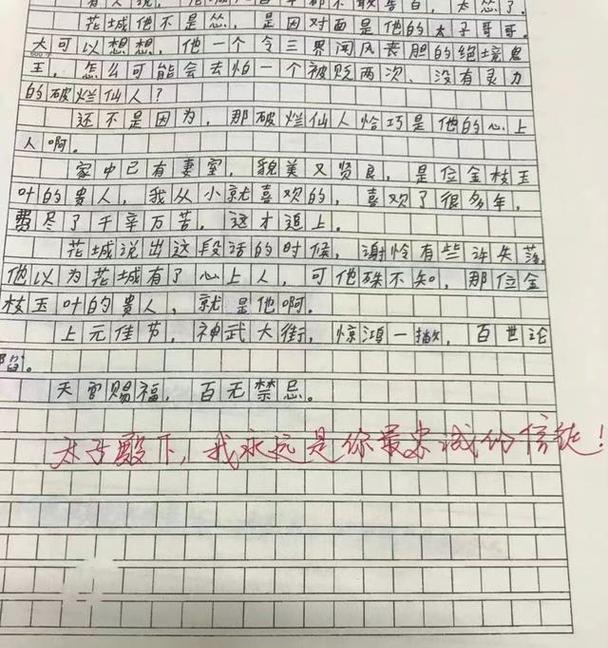 有人说，花城八百年都不敢告白，太怂了。
花城他不是怂，是因对面是他的太子哥哥。
大可以想想，他一个令三界闻风丧胆的绝境鬼
王，怎么可能会去怕一个被贬两次、没有灵力
的破烂仙人？
还不是因为，那破烂仙人恰巧是他的心上
人啊。
家中已有妻室，貌美又贤良，是位金枝玉
叶的贵人，我从小就喜欢的，喜欢了很多年，
费尽了千辛万苦，这才追上。
花城说出这段话的时候，谢怜有些许失落，
他以为花城有了心上人，可他殊不知，那位金
枝玉叶的贵人，就是他啊。
上元佳节，神武大街，惊鸿一瞥，百世沦
陷。
天官赐福，百无禁忌。
太子殿下，我永远是你最忠诚的信徒！